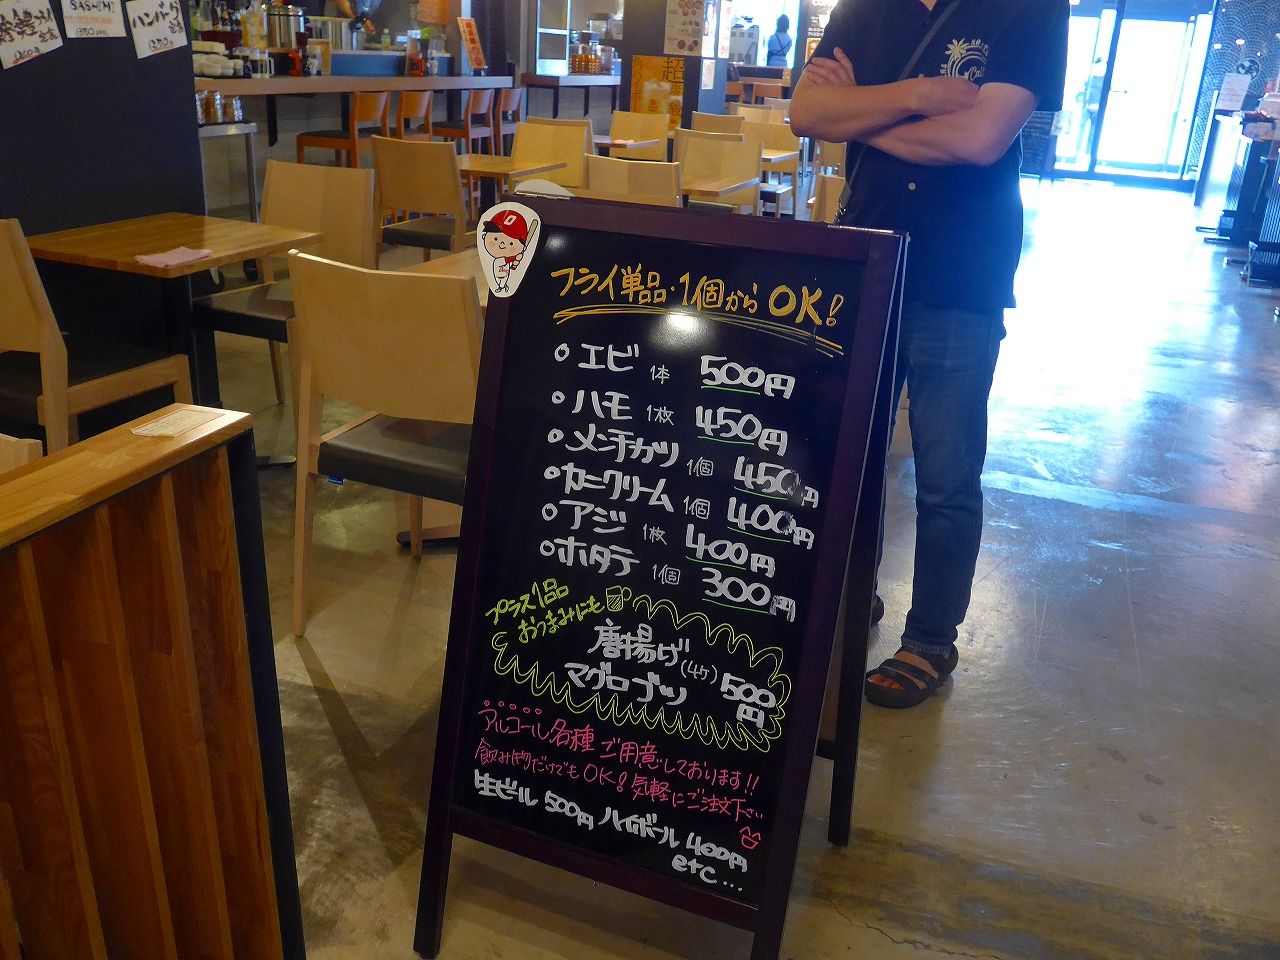 SASHIMI
ハンバーグ
フライ単品・1個からOK!
○エビ 1本 500円
○ハモ 1枚 450円
○メンチカツ 1個 450円
○カニクリーム 1個 400円
○アジ 1枚 400円
○ホタテ 1個 300円
プラス1品
おつまみにも
唐揚げ(4ヶ) 500円
マグロブツ
アルコール各種ご用意しております!!
飲み物だけでもOK!気軽にご注文下さい
生ビール 500円 ハイボール 400円
etc...